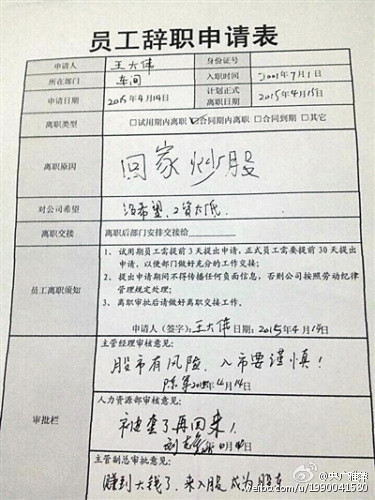 员工辞职申请表
申请人 王大伟 身份证号
所在部门 车间 入职时间 2001年7月1日
申请日期 2015年4月14日 计划正式离职日期 2015年4月15日
离职类型 □试用期内离职 ☑合同期内离职 □合同到期 □其它
离职原因 回家炒股
对公司希望 没希望,工资太低.
离职交接 离职后部门安排交接给
员工离职须知
1、试用期员工需提前3天提出申请,正式员工需要提前30天提出
申请,以便部门做好充分的工作交接;
2、提出申请期间不得传播任何负面信息,否则公司按照劳动纪律
管理规定处理;
3、离职审批后请做好离职交接工作。
申请人(签字):王大伟 日期:2015年4月14日
审批栏
主管经理审核意见:
股市有风险,入市要谨慎!
4月14日
人力资源部审核意见:
被套了再回来!
主管副总审批意见:
赚到大钱了,来入股成为股东
@央广军事
weibo.com/u/1990041530